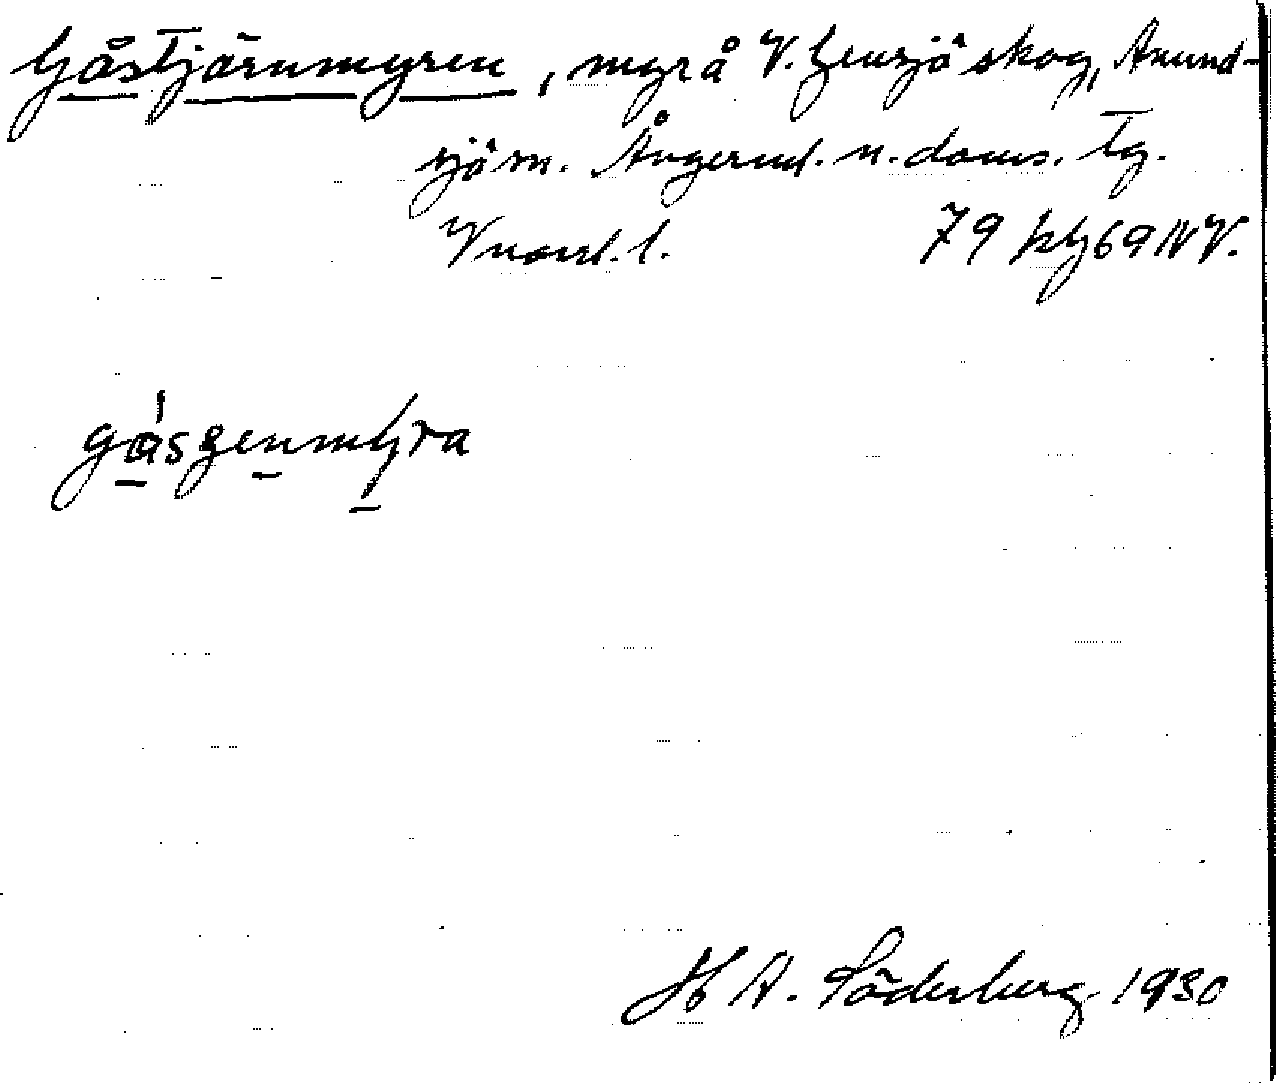 Gåstjärnmyren, myr å V. Gensjö skog, Anund-
sjö sn. Ångerml. n. doms. tg.
Vnorrl. l. 79 kbl 69 NV.
gåsʒenmyra
H A. Söderberg. 1930